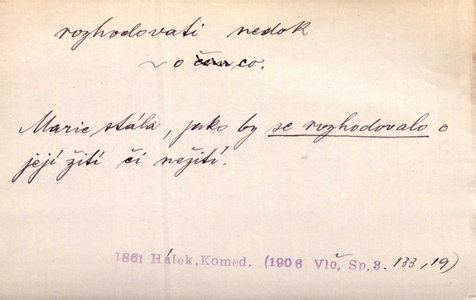 rozhodovati nedok
~ o co.
Marie stála, jako by se rozhodovalo o
její žití či nežití.
1861 Hálek, Komed. (1906 Vlč, Sp. 3. 133, 19)